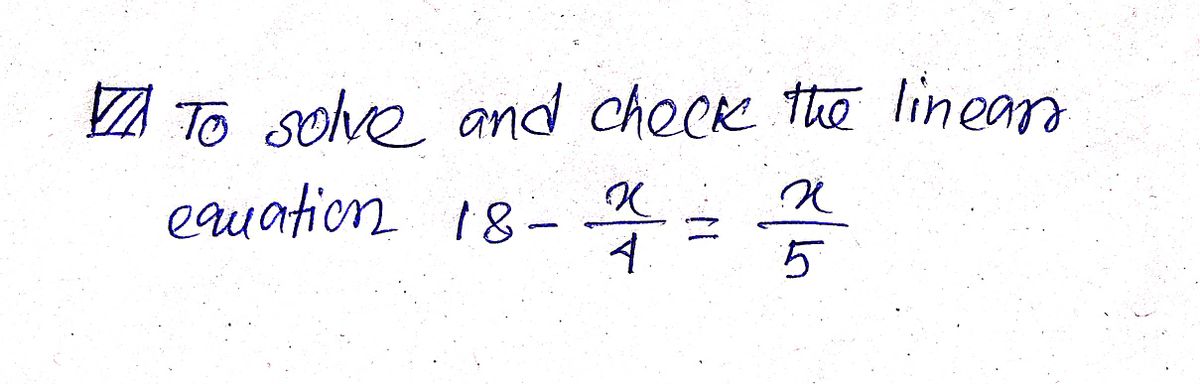 To solve and check the linear
equation 18 - x/4 = x/5